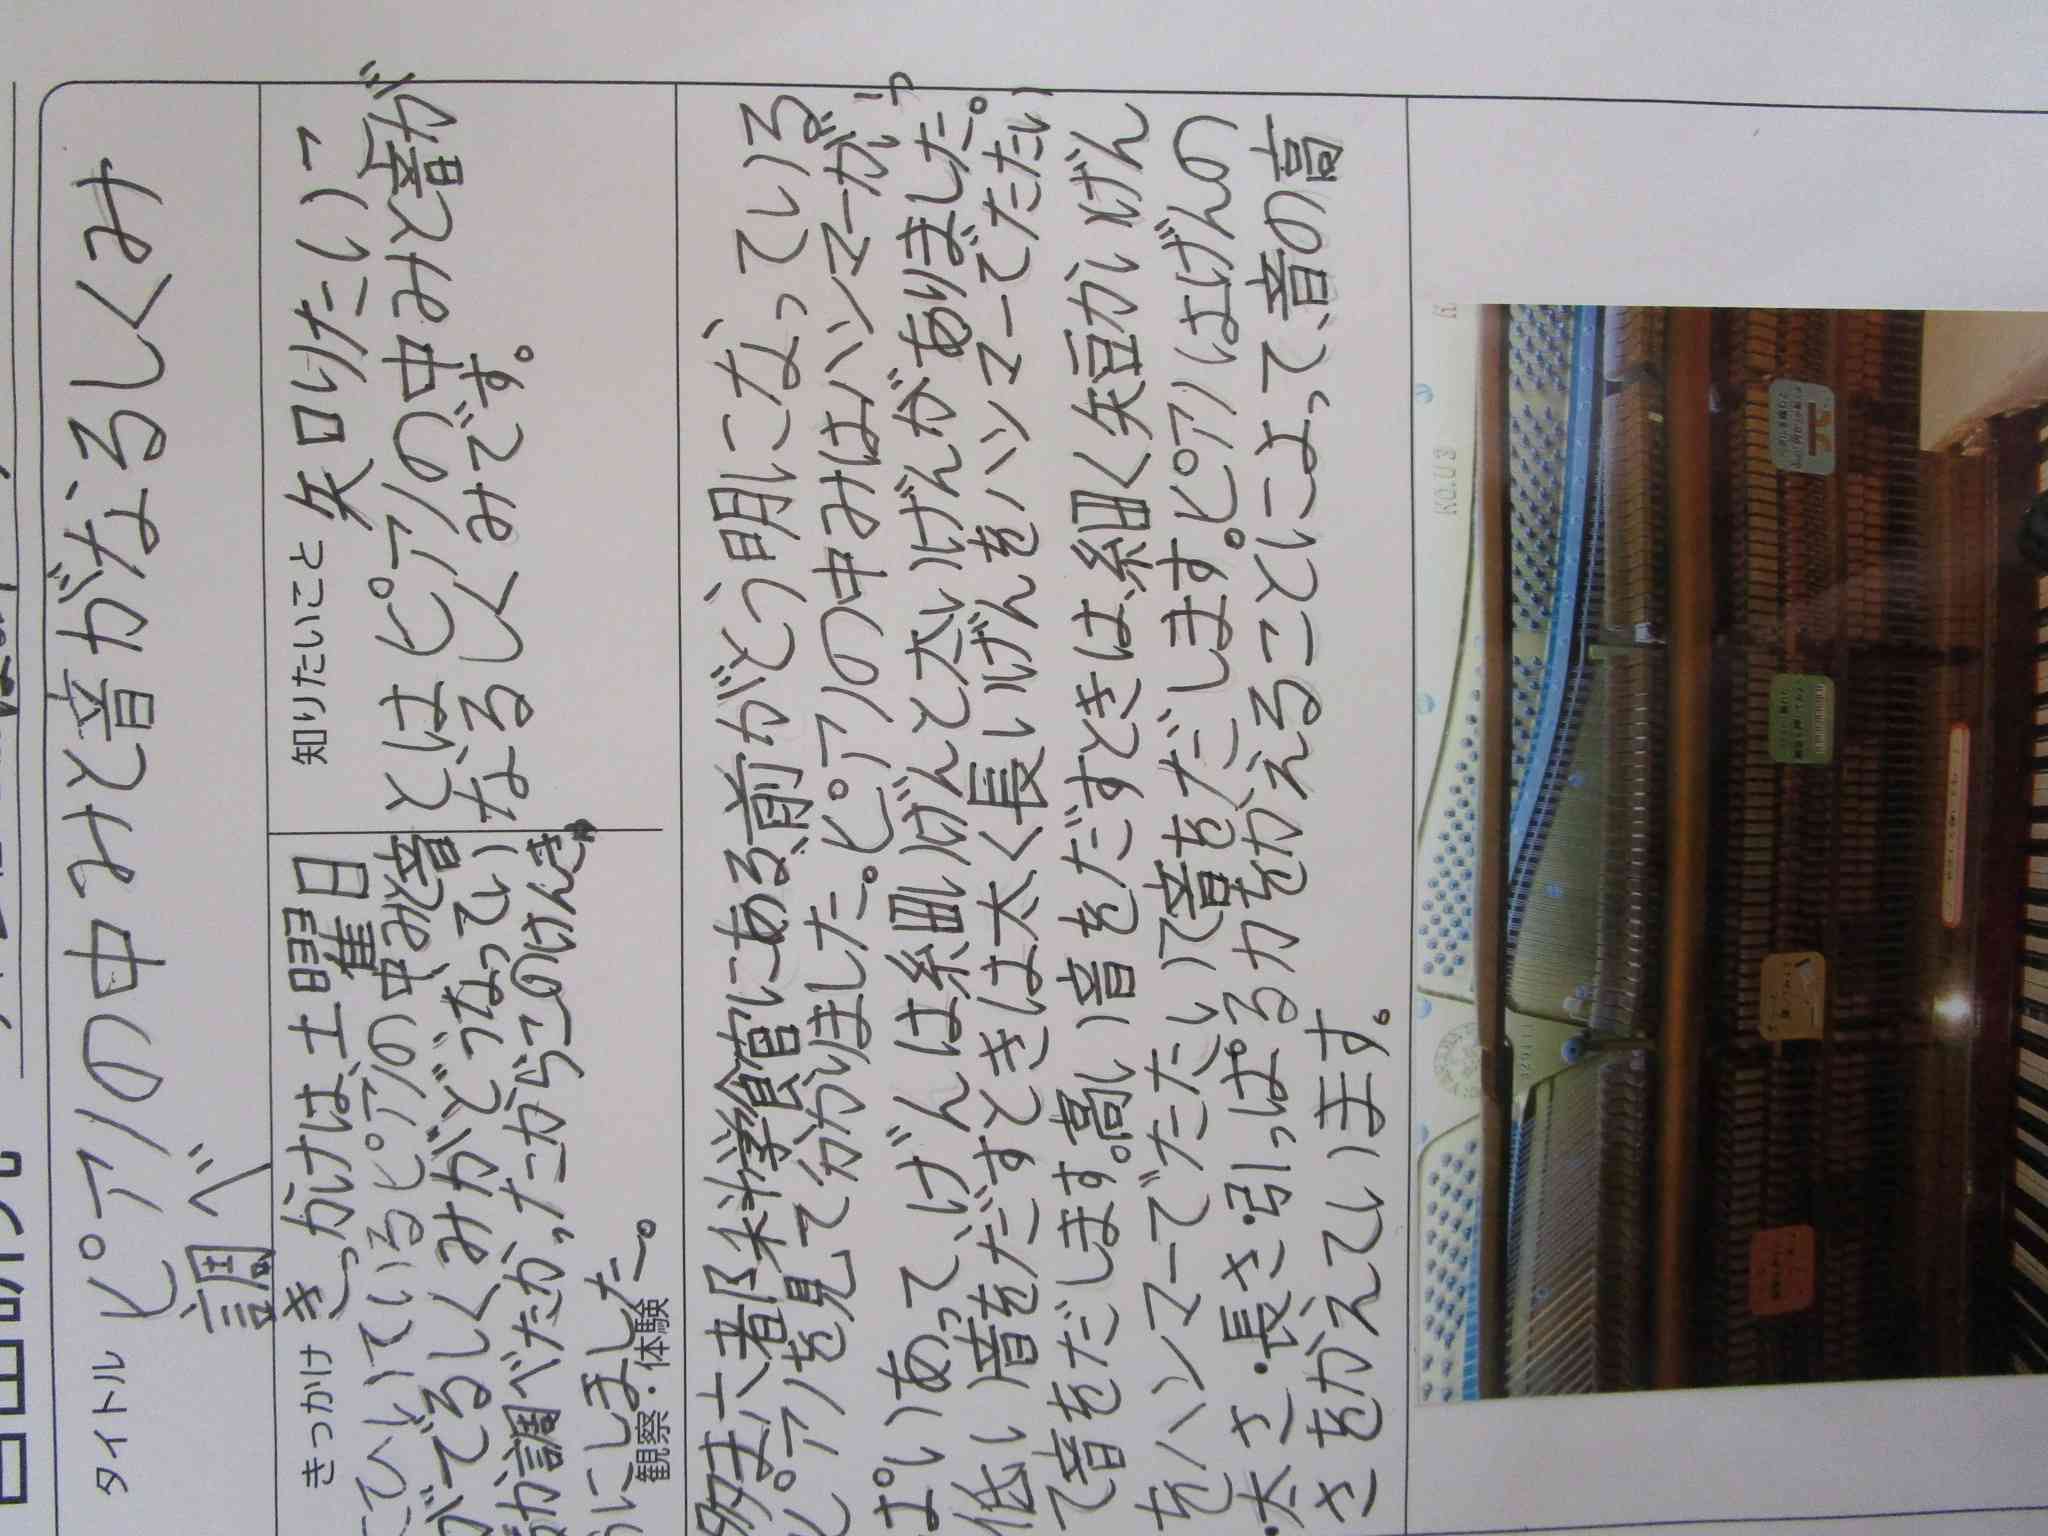 タイトル ピアノの中みと音がなるしくみ
調べ
きっかけ きっかけは、土曜日
にひいているピアノの中み音
がでるしくみがどうなってい
るか調べたかったからこのけんき
うにしました。
知りたいこと 知りたいこ
とはピアノの中みと音が
なるしくみです。
観察・体験
多ま六都科学館にある、前がとう明になっている
ピアノを見て分かりました。ピアノの中みはハンマーがいっ
ぱいあって、げんは細いげんと太いげんがありました。
低い音をだすときは太く長いげんをハンマーでたたい
て音をだします。高い音をだすときは、細く短かいげん
をハンマーでたたいて音をだします。ピアノはげんの
・太さ・長さ・引っぱる力をかえることによって、音の高
さをかえています。
KO.U3